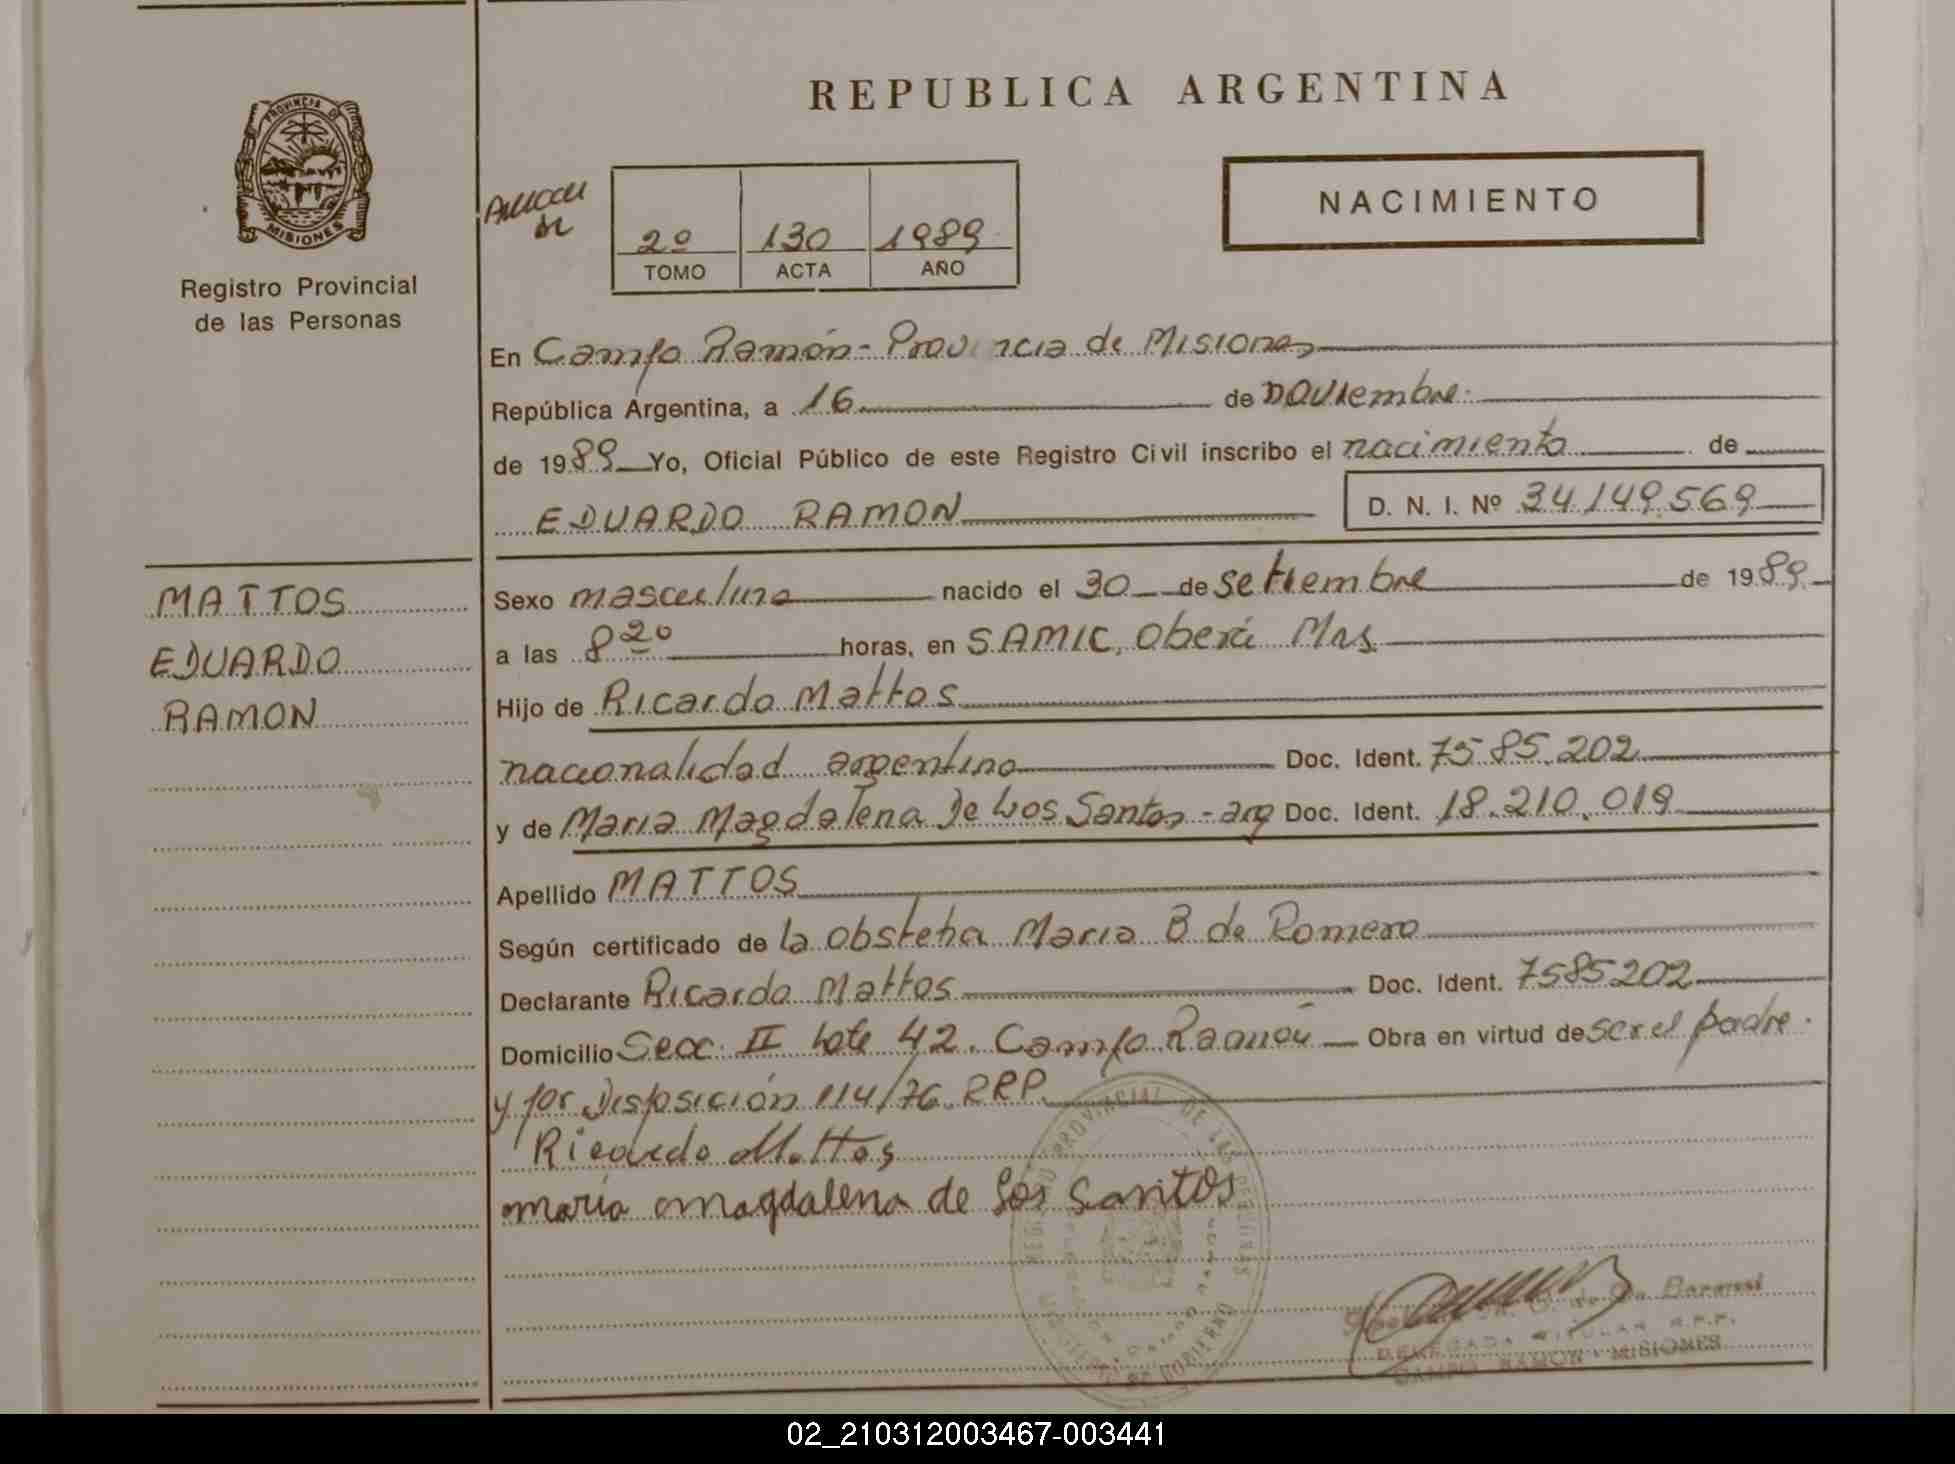 PROVINCIA DE
MISIONES
Registro Provincial
de las Personas
MATTOS
EDUARDO
RAMON
REPUBLICA ARGENTINA
2º 130 1989
TOMO ACTA AÑO
NACIMIENTO
En Campo Ramón - Provincia de Misiones
República Argentina, a 16 de noviembre
de 1989 Yo, Oficial Público de este Registro Civil inscribo el nacimiento de
EDUARDO RAMON D. N. I. Nº 34.149.569
Sexo masculino nacido el 30 de setiembre de 1989
a las 8 20 horas, en SAMIC, Oberá Mns.
Hijo de Ricardo Mattos
nacionalidad argentino Doc. Ident. 7585.202
y de Maria Magdalena De Los Santos - arg Doc. Ident. 18.210.019
Apellido MATTOS
Según certificado de la obstetra Maria B de Romero
Declarante Ricardo Mattos Doc. Ident. 7585202
Domicilio Secc. II Lote 42. Campo Ramón Obra en virtud de ser el padre.
y por Disposición 114/76. RRP.
Ricardo Mattos
maria magdalena de los santos
PROVINCIAL DE LAS PERSONAS
DELEGADA TITULAR R.P.P.
CAMPO RAMON - MISIONES
02_210312003467-003441